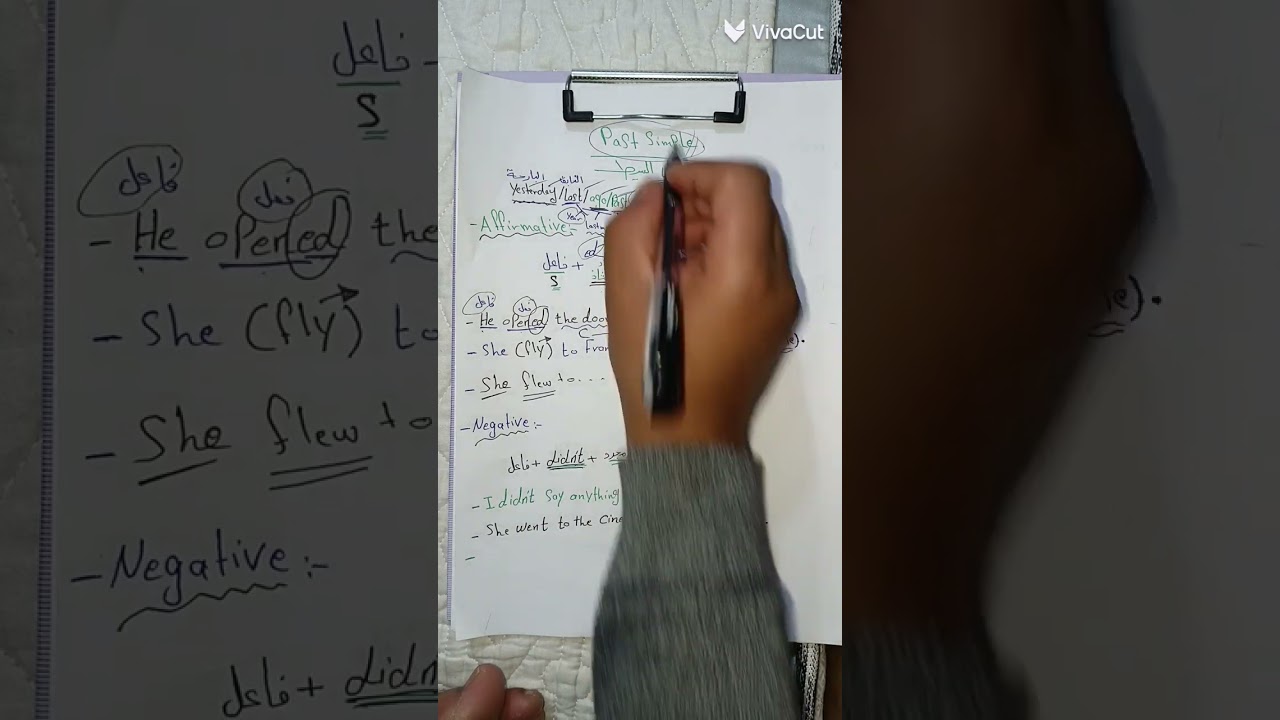 VivaCut
Past Simple
البسيط
البارحة
Yesterday/Last/ago/Past
- Affirmative:- Last
ed
فاعل +
S
فاعل فعل
- He opened the door
- She (fly) to Fran
- She flew to...
- Negative:-
فاعل + didn't +
- I didn't say anything
- She went to the Cine
-